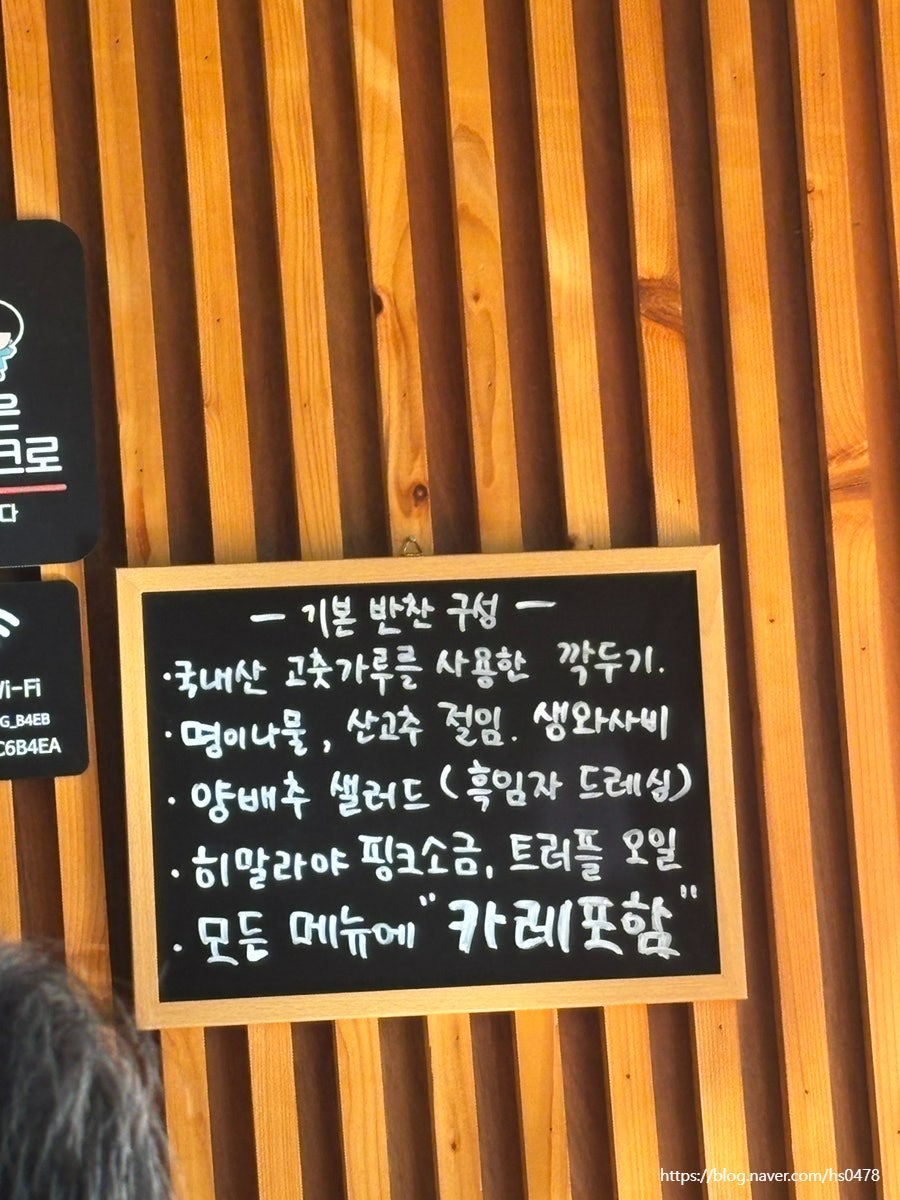 은
크로
다
Wi-Fi
G_B4EB
C6B4EA
- 기본 반찬 구성 -
·국내산 고춧가루를 사용한 깍두기.
·명이나물, 산고추 절임. 생와사비
·양배추 샐러드 (흑임자 드레싱)
·히말라야 핑크소금, 트러플 오일
·모든 메뉴에 "카레포함"
https://blog.naver.com/hs0478